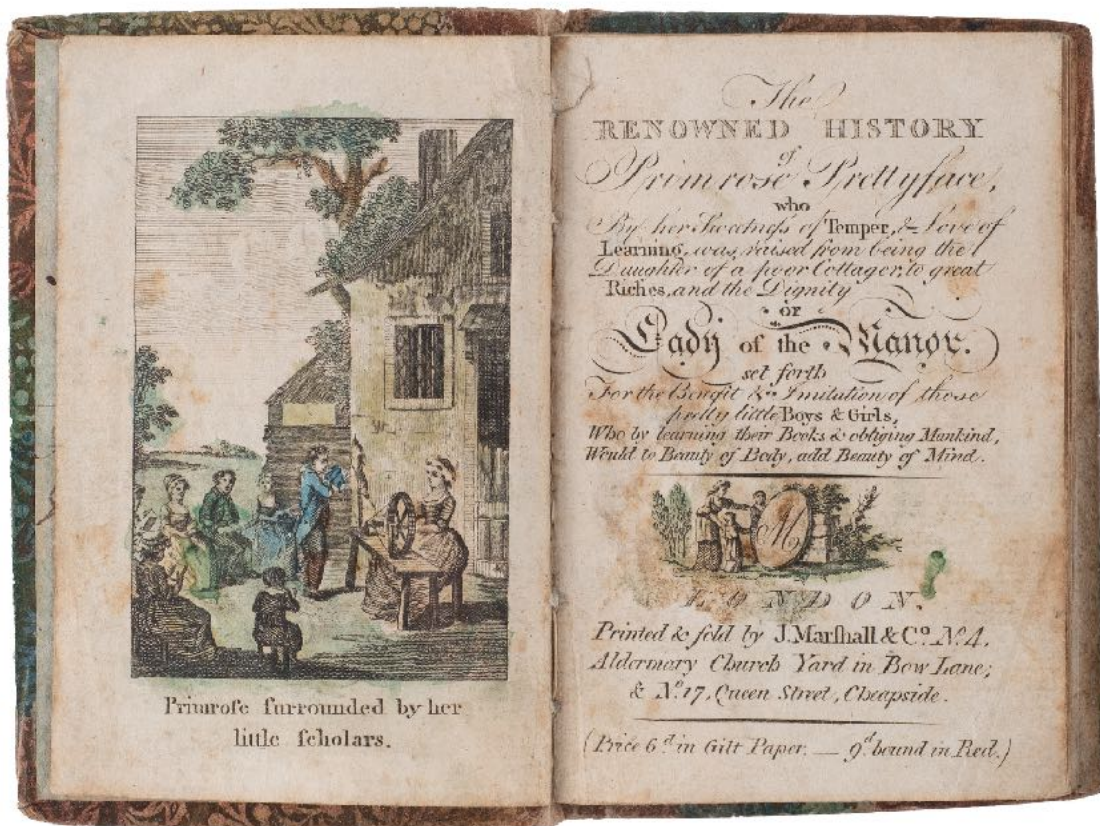 Primroſe ſurrounded by her
little ſcholars.
The
RENOWNED HISTORY
of
Primrose Prettyface,
who
By her Sweetneſs of Temper, & Love of
Learning, was raised from being the
Daughter of a poor Cottager, to great
Riches, and the Dignity
of
Lady of the Manor.
set forth
For the Benefit & Imitation of those
pretty little Boys & Girls,
Who by learning their Books & obliging Mankind,
Would to Beauty of Body, add Beauty of Mind.
M
LONDON.
Printed & ſold by J. Marſhall & Co. No. 4,
Aldermary Church Yard in Bow Lane;
& No. 17, Queen Street, Cheapside.
(Price 6d. in Gilt Paper. — 9d. bound in Red.)